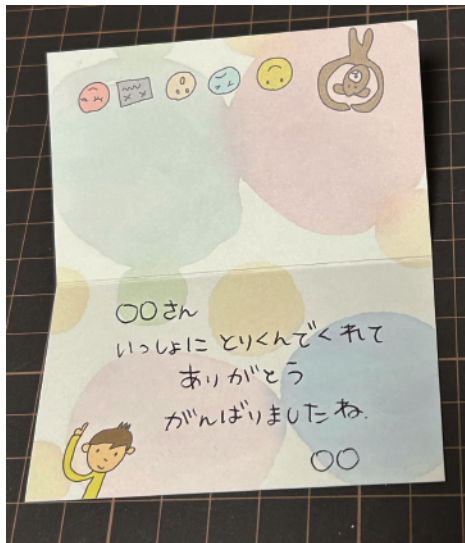 ○○さん
いっしょに とりくんでくれて
ありがとう
がんばりましたね.
○○